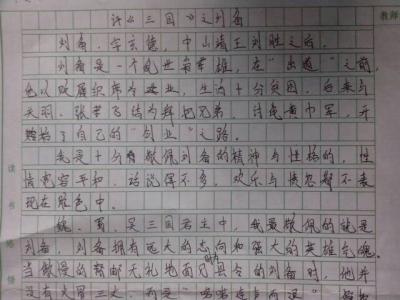 评《三国》之刘备
刘备,字玄德,中山靖王刘胜之后。
刘备是一个乱世枭雄,在“出道”之前,
他以贩履织席为业,生活十分贫困,后来与
关羽、张飞结为拜把兄弟,讨伐黄巾军,开
始了自己的“创业”之路。
我是十分敬佩刘备的精神与性格的,性
情宽容平和,话说得不多,欢乐与愤怒都不表
现在脸色中。
魏、蜀、吴三国君主中,我最敬佩的就是
刘备,刘备拥有远大的志向和强大的英雄气魄。
当傲慢的督邮无礼地面见县令的刘备时,他并
没有火冒三丈,而是“
教师
读
书